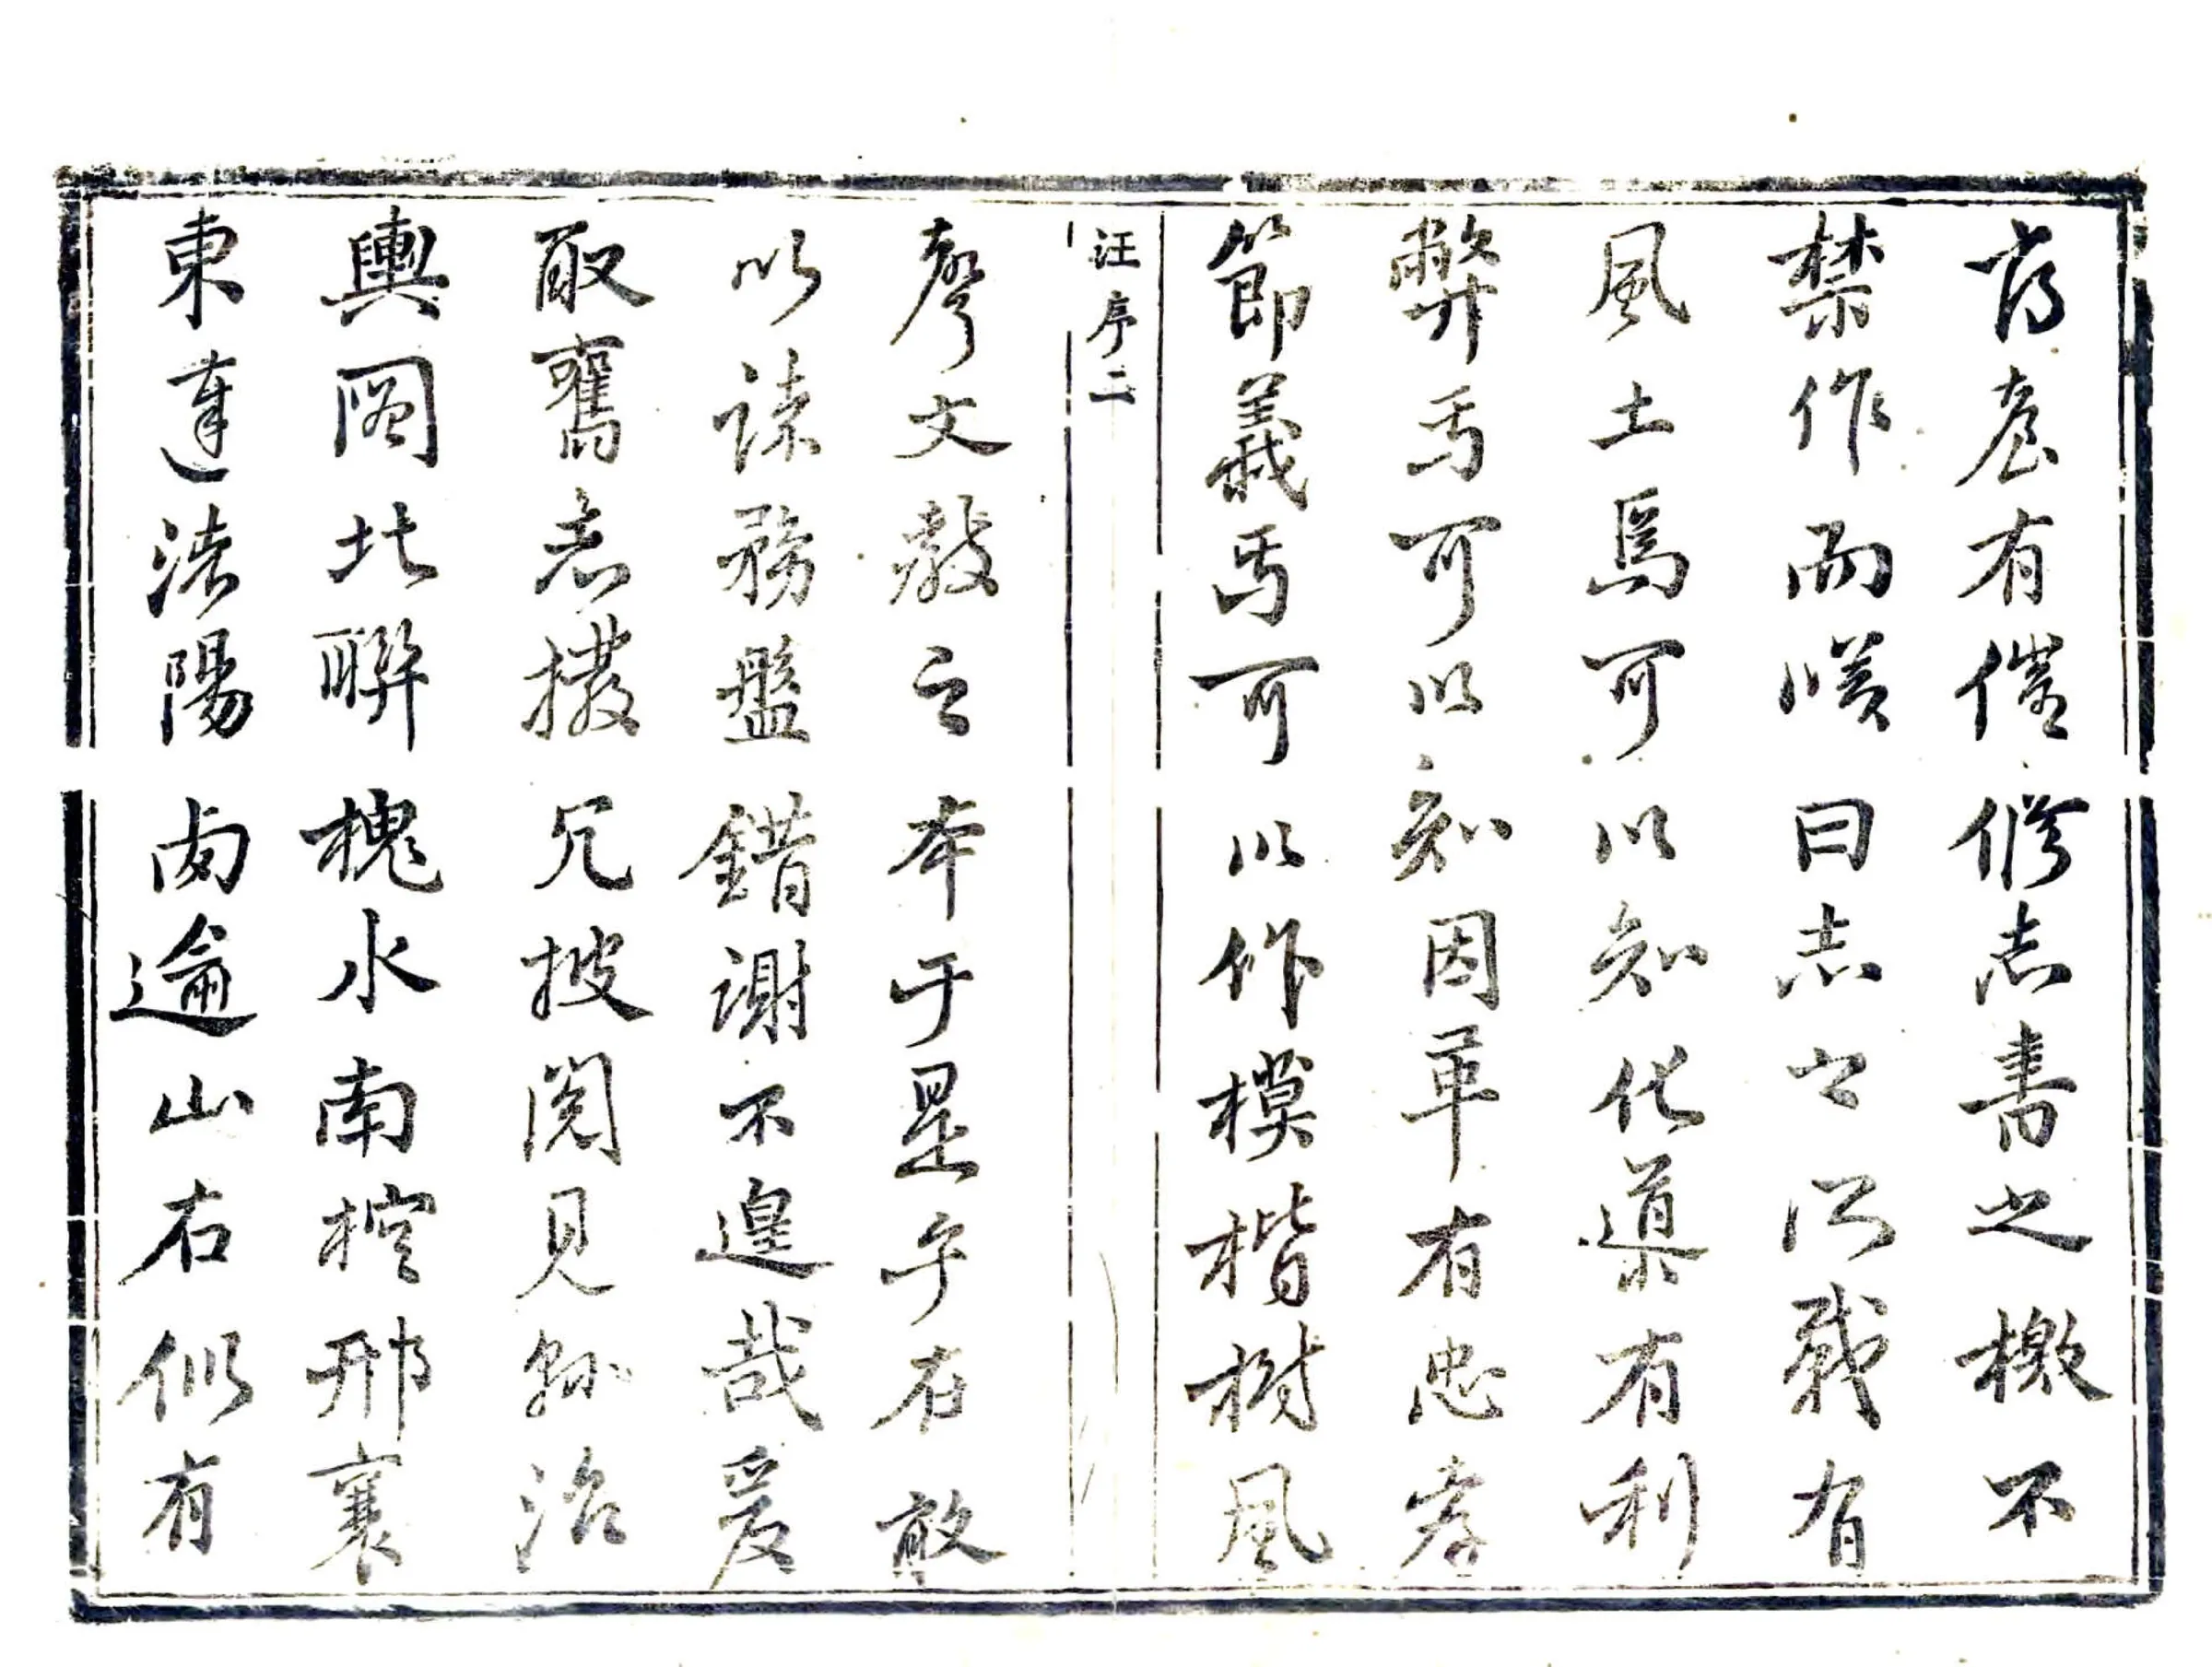 憲有催修志書之檄不
禁作而嘆曰志之所載有
風土焉可以知化導有利
弊焉可以知因革有忠孝
節義焉可以作模楷樹風
汪序二
聲文教之本于是乎在敢
以諫務盤錯謝不遑哉爰
取舊志撥冗披閱見縣治
輿圖北聯槐水南控邢襄
東達洺陽西踰山右似有